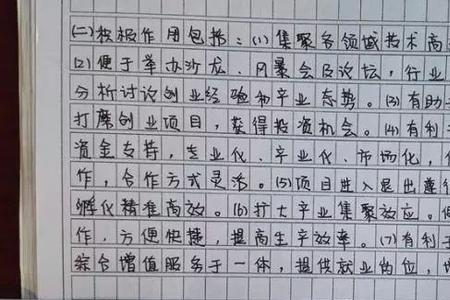 (二)积极作用包括：(1)集聚各领域技术高
(2)便于举办沙龙、风暴会及论坛，行业
分析讨论创业经验和产业态势。(3)有助
打磨创业项目，获得投资机会。(4)有利
资金支持，专业化、产业化、市场化，
作，合作方式灵活。(5)项目进入退出遵
孵化精准高效。(6)扩大产业集聚效应。
作，方便快捷，提高生产效率。(7)有利于
综合增值服务于一体，提供就业岗位，增